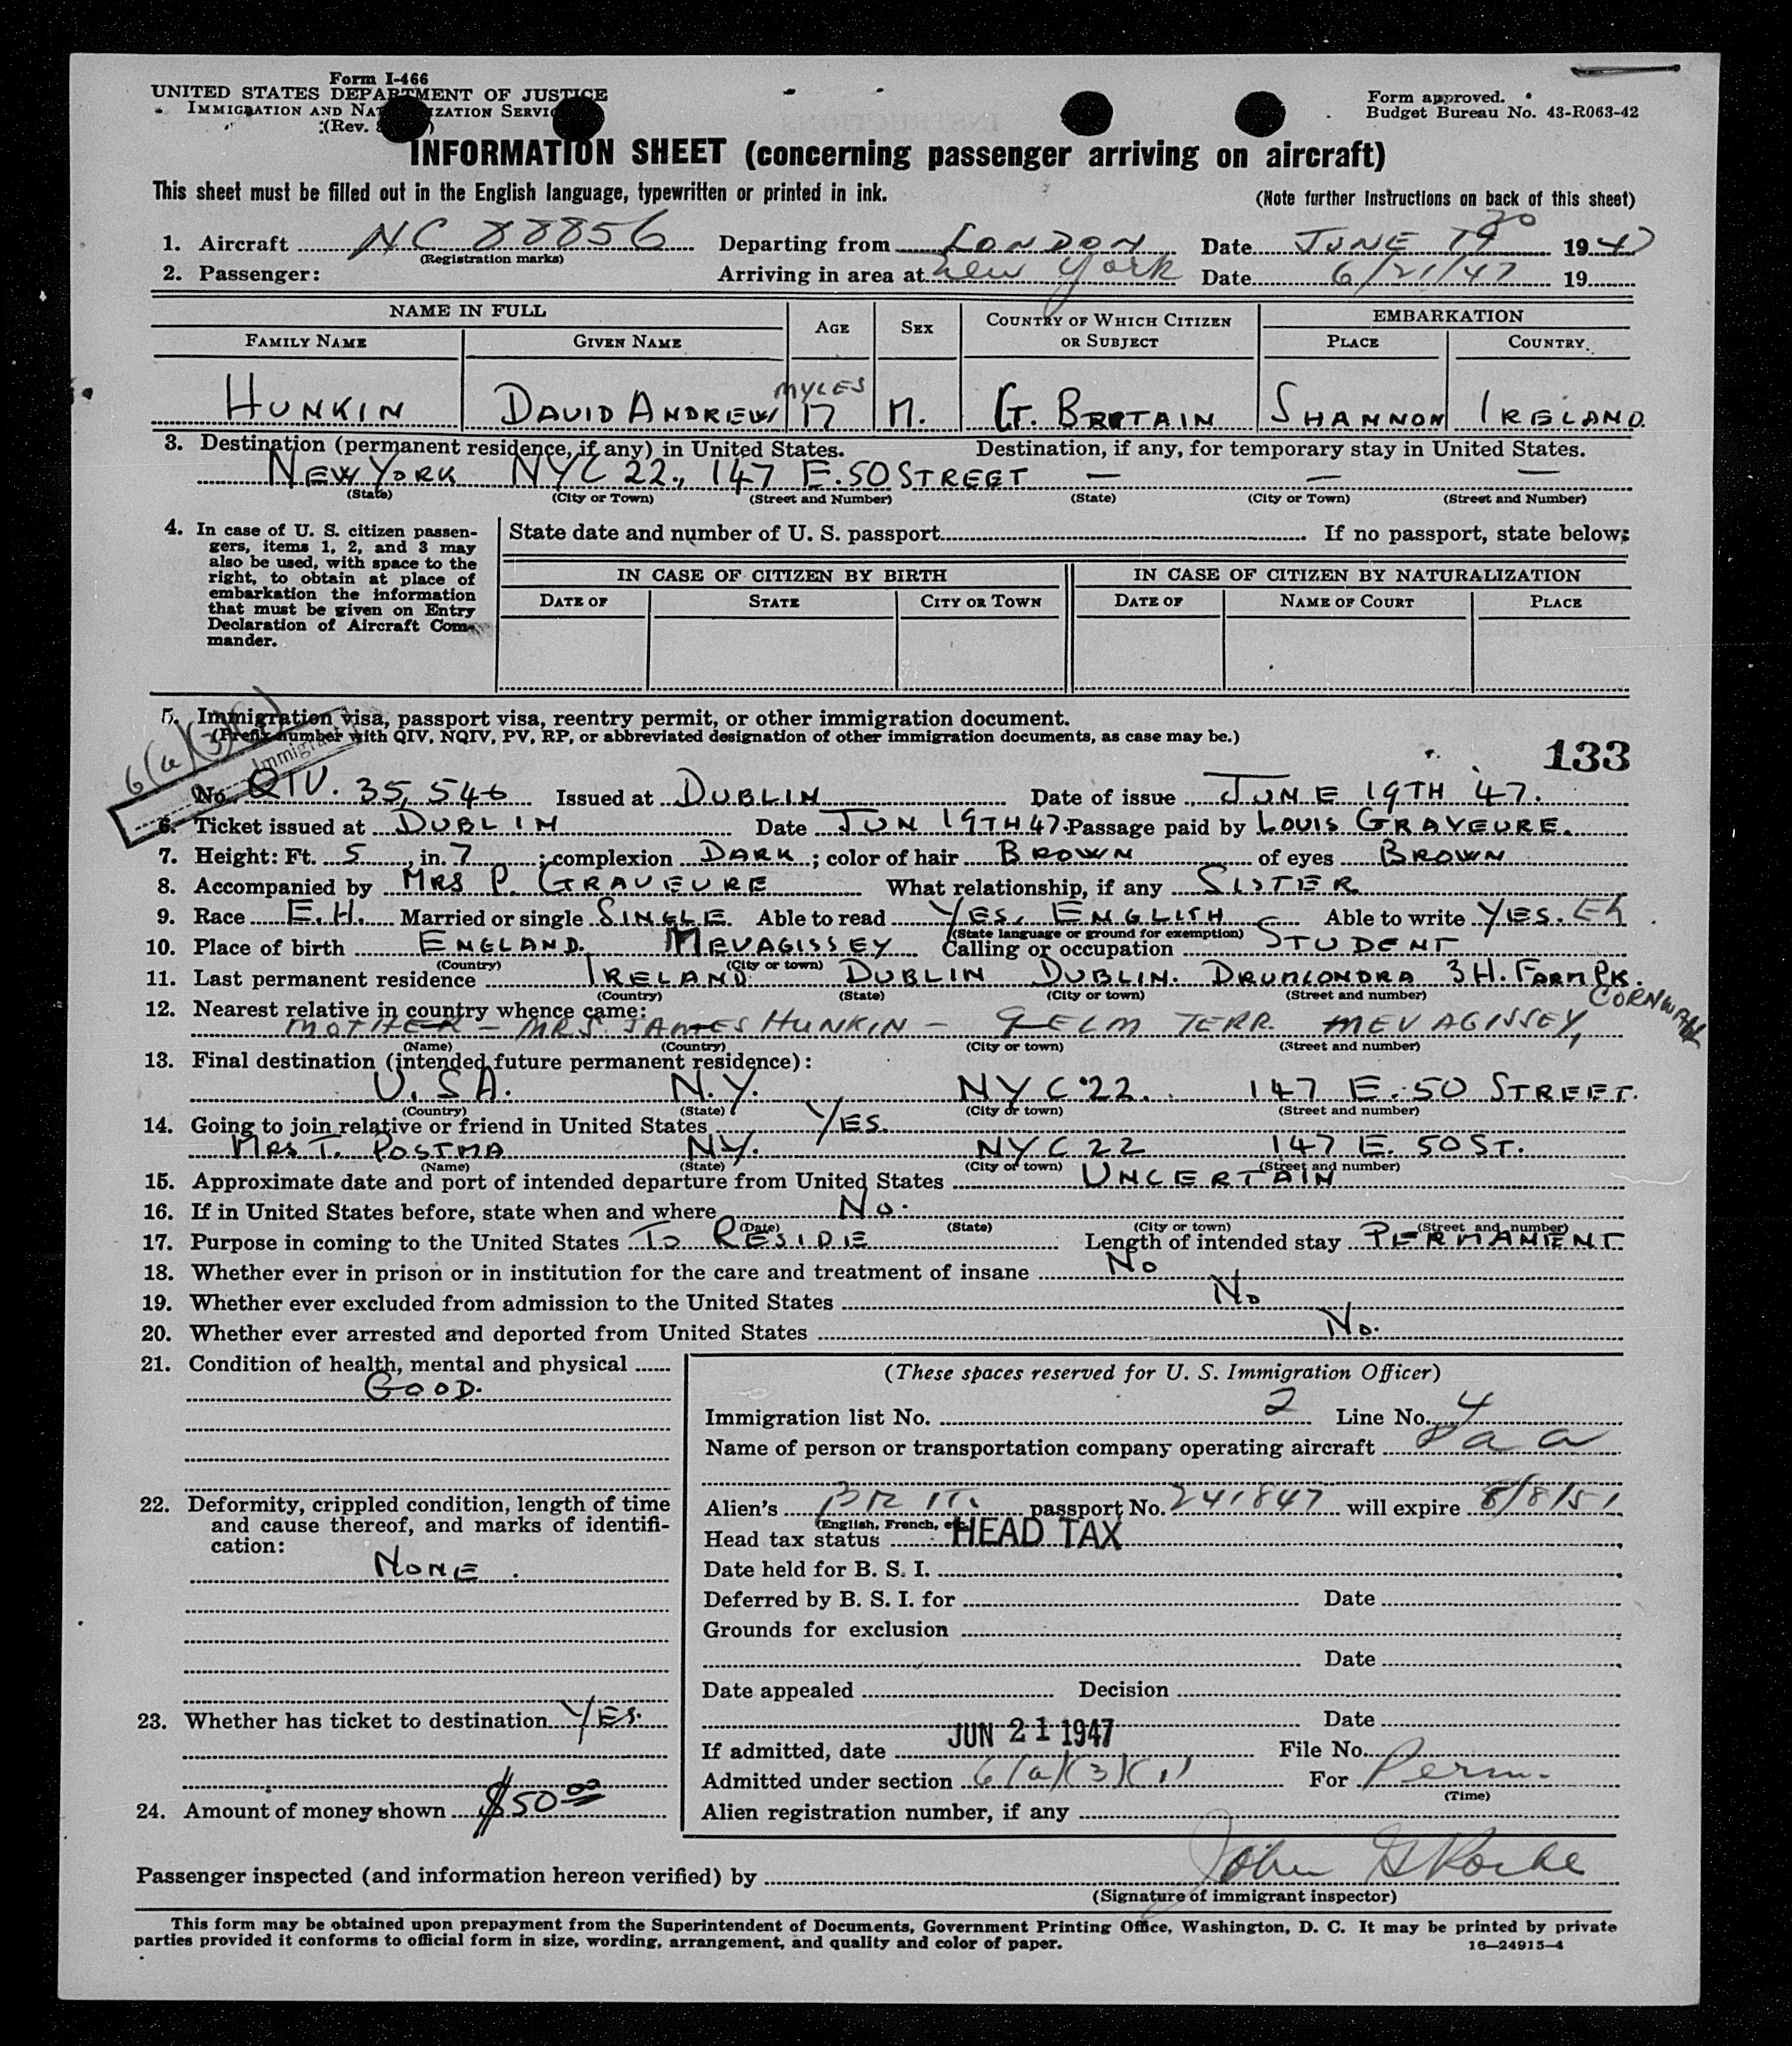 Form I-466
UNITED STATES DEPARTMENT OF JUSTICE
IMMIGRATION AND NATURALIZATION SERVICE
(Rev.
Form approved.
Budget Bureau No. 43-R063-42
INFORMATION SHEET (concerning passenger arriving on aircraft)
This sheet must be filled out in the English language, typewritten or printed in ink.
(Note further instructions on back of this sheet)
1. Aircraft NC 88856 Departing from LONDON Date JUNE 19 20 1947
(Registration marks)
2. Passenger: Arriving in area at New York Date 6/21/47 19
NAME IN FULL AGE SEX COUNTRY OF WHICH CITIZEN OR SUBJECT EMBARKATION
FAMILY NAME GIVEN NAME PLACE COUNTRY
MYLES
HUNKIN DAVID ANDREW 17 M. GT. BRITAIN SHANNON IRELAND.
3. Destination (permanent residence, if any) in United States. Destination, if any, for temporary stay in United States.
NEW YORK NYC 22, 147 E. 50 STREET — — —
(State) (City or Town) (Street and Number) (State) (City or Town) (Street and Number)
4. In case of U. S. citizen passen-
gers, items 1, 2, and 3 may
also be used, with space to the
right, to obtain at place of
embarkation the information
that must be given on Entry
Declaration of Aircraft Com-
mander.
State date and number of U. S. passport If no passport, state below:
IN CASE OF CITIZEN BY BIRTH IN CASE OF CITIZEN BY NATURALIZATION
DATE OF STATE CITY OR TOWN DATE OF NAME OF COURT PLACE
5. Immigration visa, passport visa, reentry permit, or other immigration document.
(Prefix number with QIV, NQIV, PV, RP, or abbreviated designation of other immigration documents, as case may be.)
6(a)(3)
133
No. QIV. 35,546 Issued at DUBLIN Date of issue JUNE 19TH 47.
6. Ticket issued at DUBLIN Date JUN 19TH 47. Passage paid by LOUIS GRAVEURE.
7. Height: Ft. 5, in. 7; complexion DARK; color of hair BROWN of eyes BROWN
8. Accompanied by MRS P. GRAVEURE What relationship, if any SISTER
9. Race E.H. Married or single SINGLE. Able to read YES, ENGLISH Able to write YES.
(State language or ground for exemption)
10. Place of birth ENGLAND. MEVAGISSEY Calling or occupation STUDENT
(Country) (City or town)
11. Last permanent residence IRELAND DUBLIN DUBLIN. DRUMCONDRA 3 H. FARM PK.
(Country) (State) (City or town) (Street and number)
12. Nearest relative in country whence came:
MOTHER - MRS. JAMES HUNKIN - 9 ELM TERR. MEVAGISSEY, CORNWALL
(Name) (Country) (City or town) (Street and number)
13. Final destination (intended future permanent residence):
U.S.A. N.Y. NYC 22. 147 E. 50 STREET.
(Country) (State) (City or town) (Street and number)
14. Going to join relative or friend in United States YES.
MRS T. POSTMA NY. NYC 22 147 E. 50 ST.
(Name) (State) (City or town) (Street and number)
15. Approximate date and port of intended departure from United States UNCERTAIN
16. If in United States before, state when and where NO.
(Date) (State) (City or town) (Street and number)
17. Purpose in coming to the United States TO RESIDE Length of intended stay PERMANENT
18. Whether ever in prison or in institution for the care and treatment of insane NO
19. Whether ever excluded from admission to the United States NO
20. Whether ever arrested and deported from United States NO.
21. Condition of health, mental and physical
GOOD.
22. Deformity, crippled condition, length of time
and cause thereof, and marks of identifi-
cation:
NONE.
23. Whether has ticket to destination YES.
24. Amount of money shown $50.00
(These spaces reserved for U. S. Immigration Officer)
Immigration list No. 2 Line No. 4
Name of person or transportation company operating aircraft Paa
Alien's BRIT. passport No. 241847 will expire 8/8/51
(English, French, etc.)
Head tax status HEAD TAX
Date held for B. S. I.
Deferred by B. S. I. for Date
Grounds for exclusion
Date
Date appealed Decision
Date
If admitted, date JUN 21 1947 File No.
Admitted under section 6(a)(3)(1) For Perm.
(Time)
Alien registration number, if any
Passenger inspected (and information hereon verified) by John G Roche
(Signature of immigrant inspector)
This form may be obtained upon prepayment from the Superintendent of Documents, Government Printing Office, Washington, D. C. It may be printed by private
parties provided it conforms to official form in size, wording, arrangement, and quality and color of paper.
16—24915-4